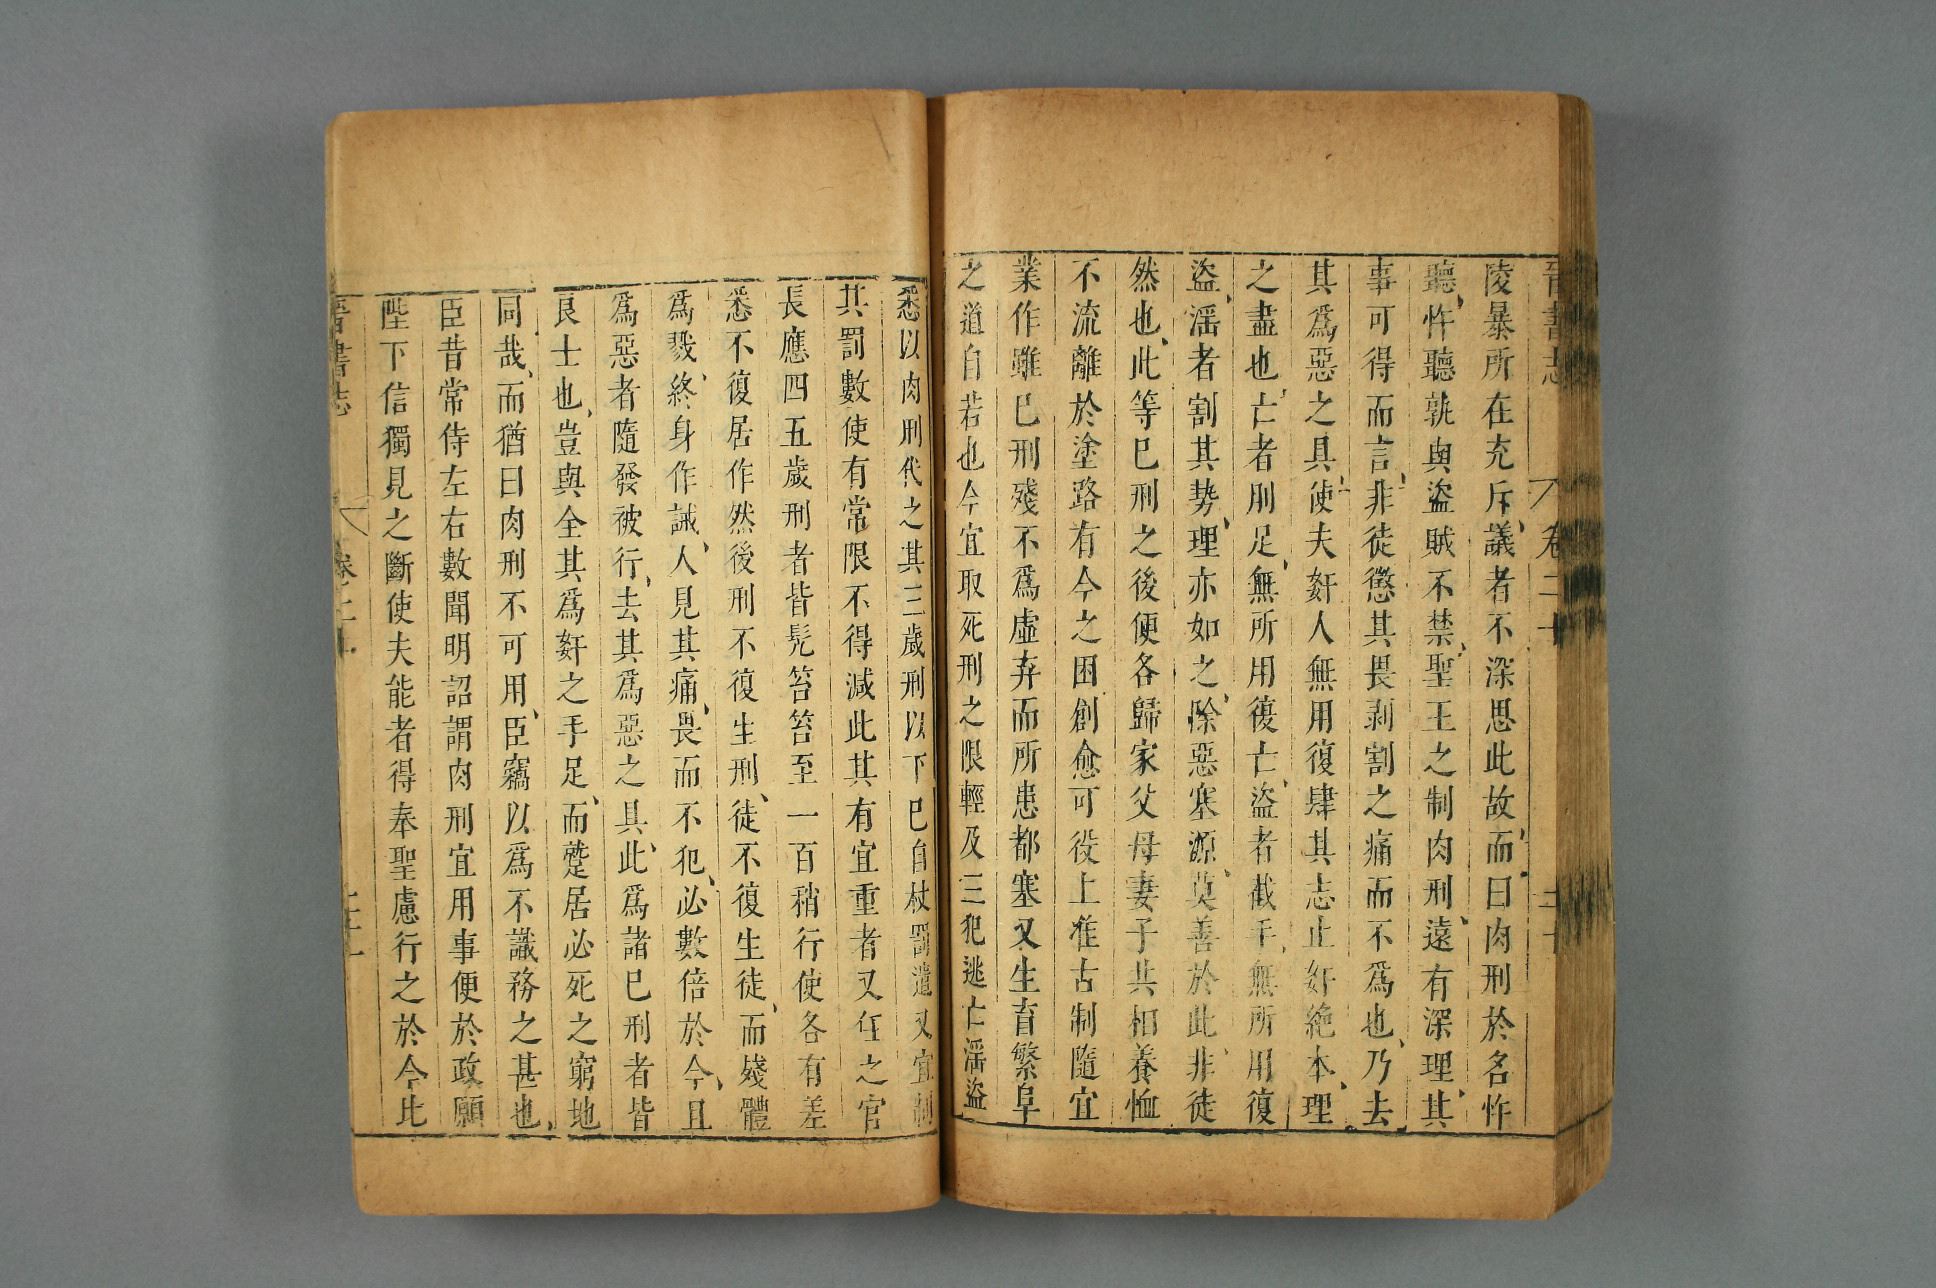 晉書志 卷二十 二十
陵暴所在充斥議者不深思此故而曰肉刑於名忤
聽忤聽孰與盜賊不禁聖王之制肉刑遠有深理其
事可得而言非徒懲其畏剥割之痛而不爲也乃去
其爲惡之具使夫姧人無用復肆其志止姧絶本理
之盡也亡者刖足無所用復亡盜者截手無所用復
盜淫者割其勢理亦如之除惡塞源莫善於此非徒
然也此等巳刑之後便各歸家父母妻子共相養恤
不流離於塗路有今之困創愈可役上准古制隨宜
業作雖巳刑殘不爲虚弃而所患都塞又生育繁阜
之道自若也今宜取死刑之限輕及三犯逃亡淫盜
悉以肉刑代之其三歲刑以下巳自杖罰遣又宜制
其罰數使有常限不得減此其有宜重者又任之官
長應四五歲刑者皆髠笞笞至一百稍行使各有差
悉不復居作然後刑不復生刑徒不復生徒而殘體
爲戮終身作誡人見其痛畏而不犯必數倍於今且
爲惡者隨發被行去其爲惡之具此爲諸巳刑者皆
良士也豈與全其爲姧之手足而蹵居必死之窮地
同哉而猶曰肉刑不可用臣竊以爲不識務之甚也
臣昔常侍左右數聞明詔謂肉刑宜用事便於政願
陛下信獨見之斷使夫能者得奉聖慮行之於今比
晉書志 卷二十 二十一